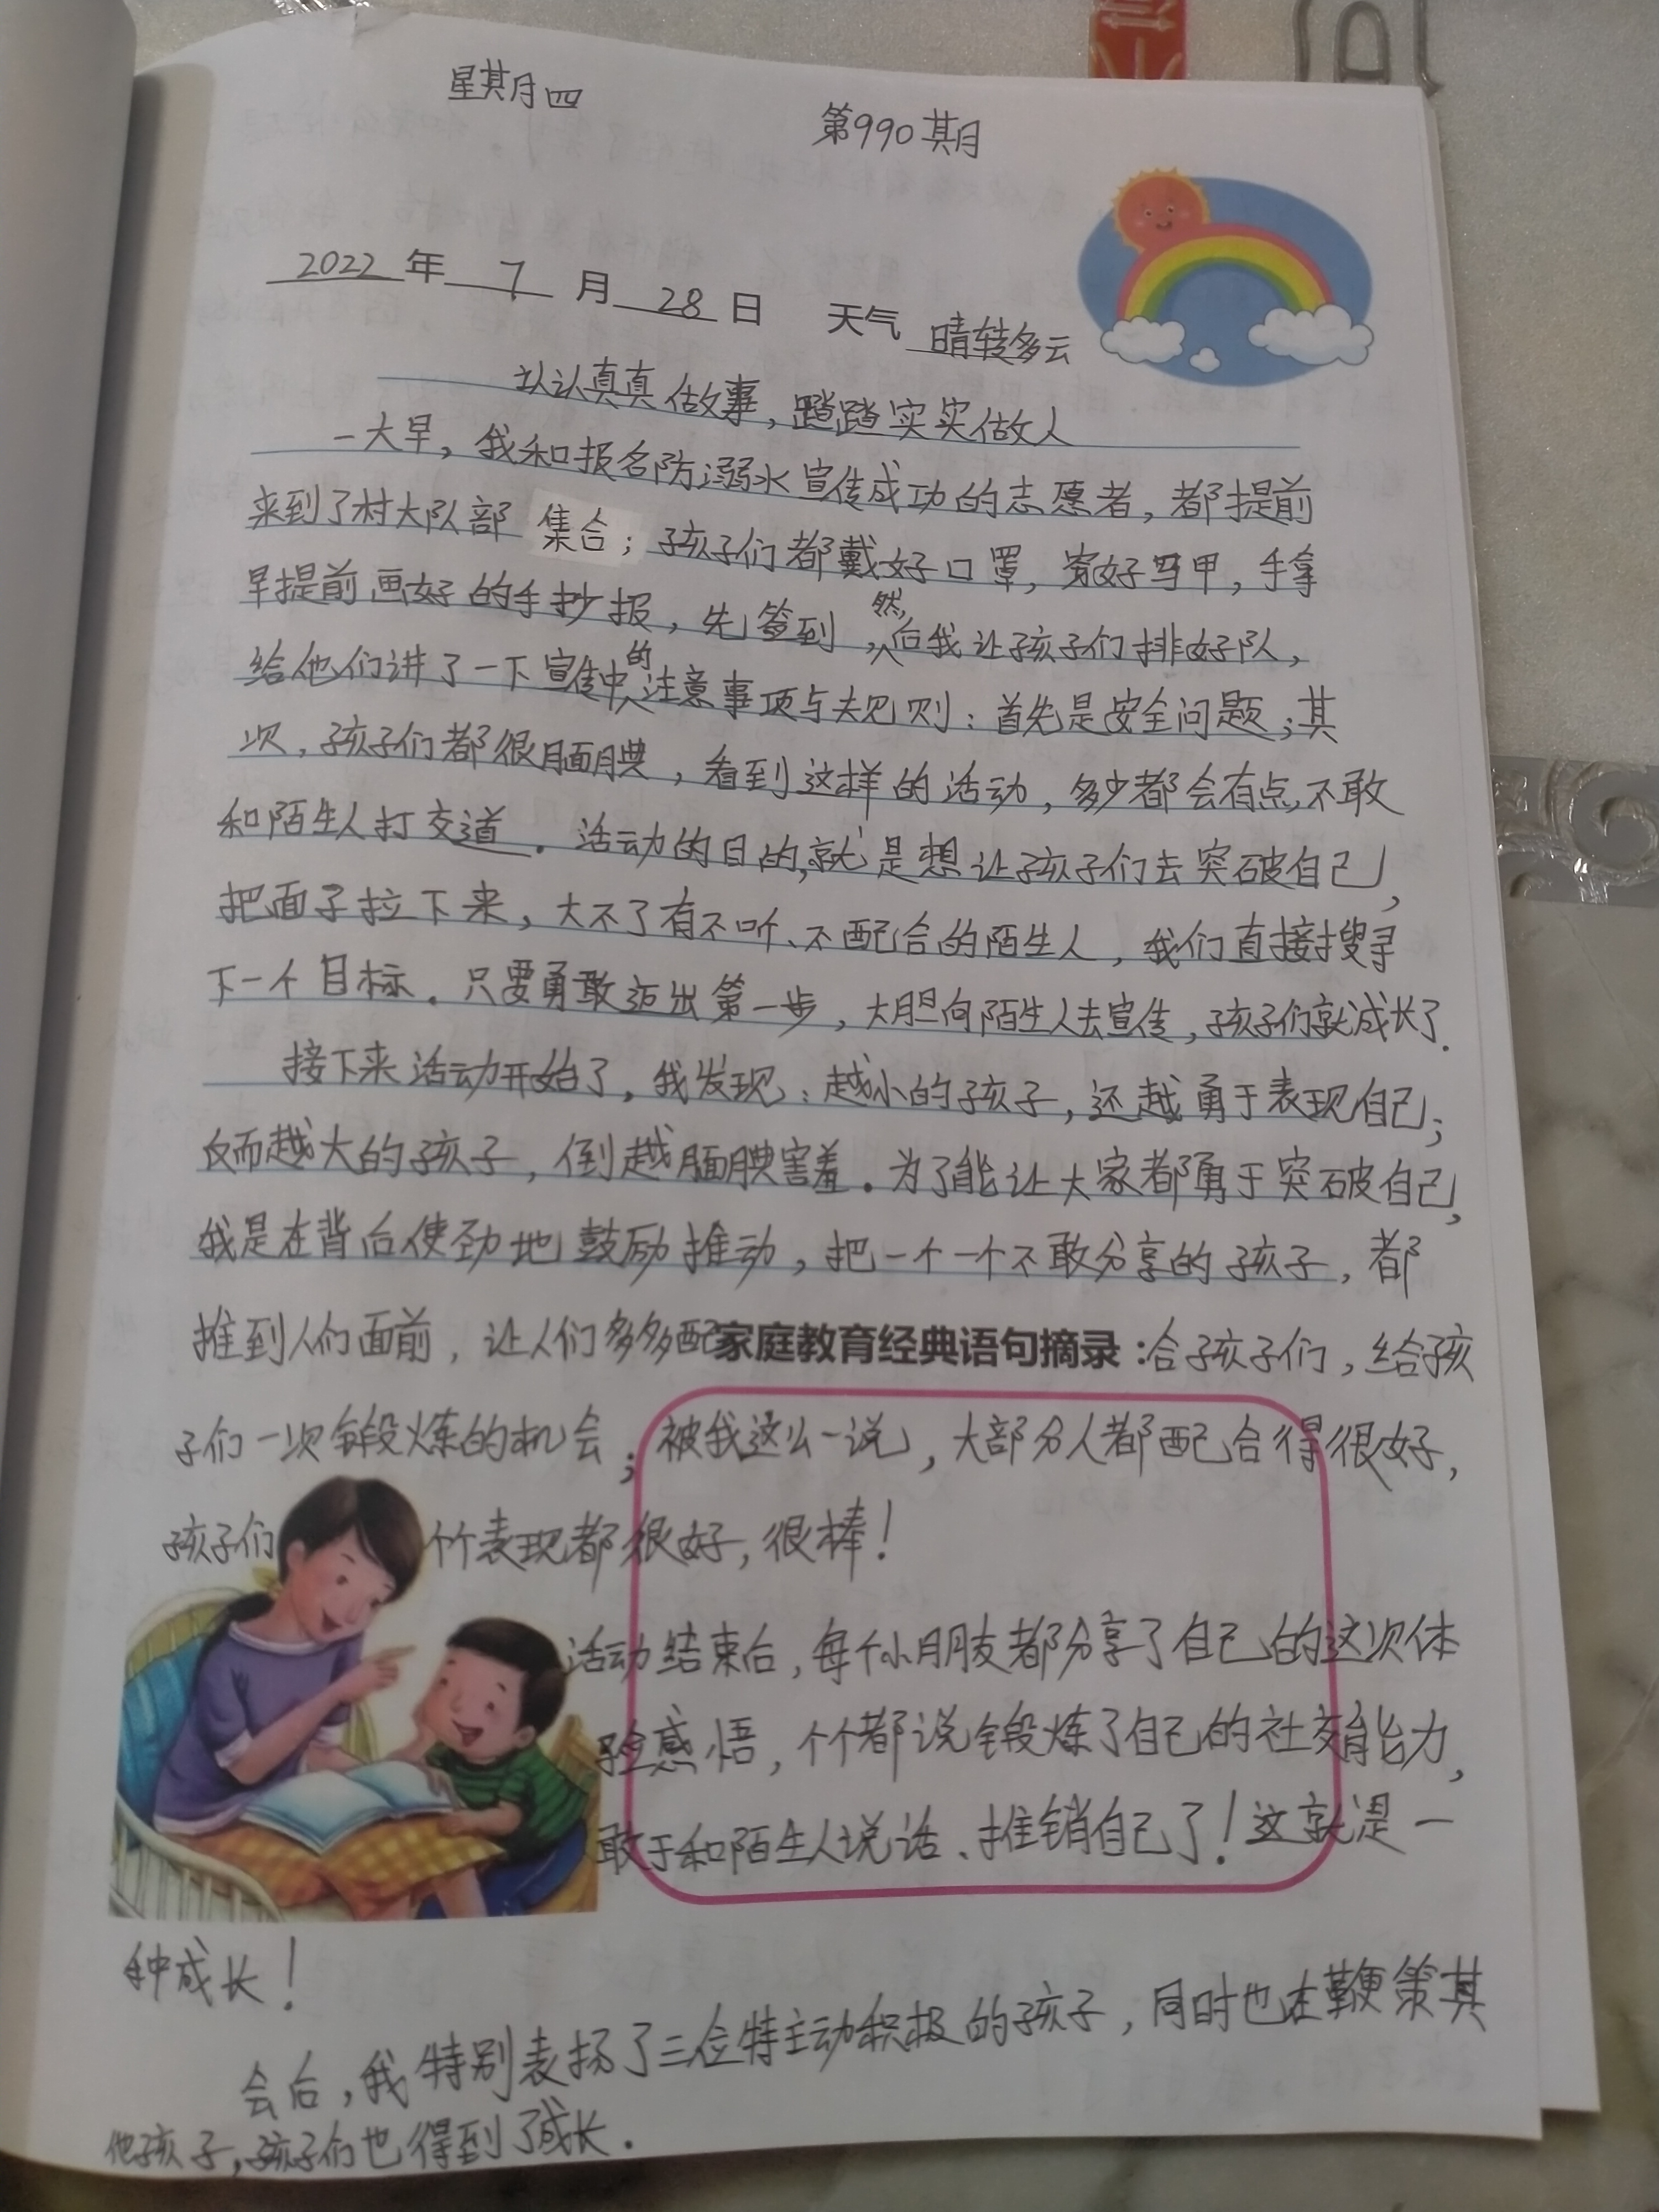 星期四
第990期
2022年7月28日 天气 晴转多云
认认真真做事，踏踏实实做人
一大早，我和报名防溺水宣传成功的志愿者，都提前
来到了村大队部集合；孩子们都戴好口罩，穿好马甲，手拿
早提前画好的手抄报，先签到，然后我让孩子们排好队，
给他们讲了一下宣传中的注意事项与规则：首先是安全问题；其
次，孩子们都很腼腆，看到这样的活动，多少都会有点不敢
和陌生人打交道。活动的目的，就是想让孩子们去突破自己，
把面子拉下来，大不了有不听、不配合的陌生人，我们直接搜寻
下一个目标。只要勇敢迈出第一步，大胆向陌生人去宣传，孩子们就成长了.
接下来活动开始了，我发现：越小的孩子，还越勇于表现自己；
反而越大的孩子，倒越腼腆害羞。为了能让大家都勇于突破自己，
我是在背后使劲地鼓励推动，把一个一个不敢分享的孩子，都
推到人们面前，让人们多多配合孩子们，给孩
家庭教育经典语句摘录：
子们一次锻炼的机会；被我这么一说，大部分人都配合得很好，
孩子们个个表现都很好，很棒！
活动结束后，每个小朋友都分享了自己的这次体
验感悟，个个都说锻炼了自己的社交能力，
敢于和陌生人说话、推销自己了！这就是一
种成长！
会后，我特别表扬了三位特主动积极的孩子，同时也在鞭策其
他孩子，孩子们也得到了成长.